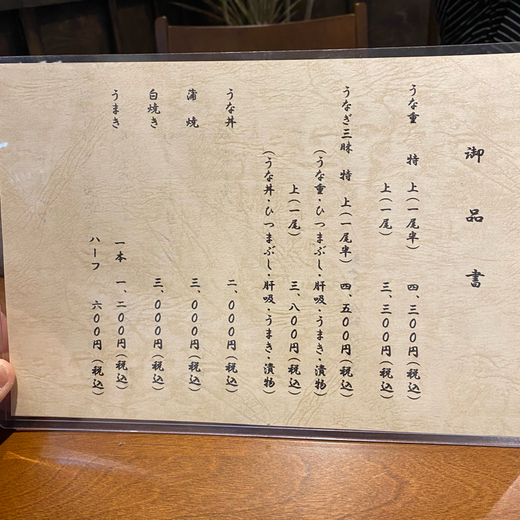 御品書
うな重 特上(一尾半) 四、三〇〇円(税込)
上(一尾) 三、三〇〇円(税込)
うなぎ三昧 特上(一尾半) 四、五〇〇円(税込)
(うな重・ひつまぶし・肝吸・うまき・漬物)
上(一尾) 三、八〇〇円(税込)
(うな丼・ひつまぶし・肝吸・うまき・漬物)
うな丼 二、〇〇〇円(税込)
蒲焼 三、〇〇〇円(税込)
白焼き 三、〇〇〇円(税込)
うまき 一本 一、二〇〇円(税込)
ハーフ 六〇〇円(税込)